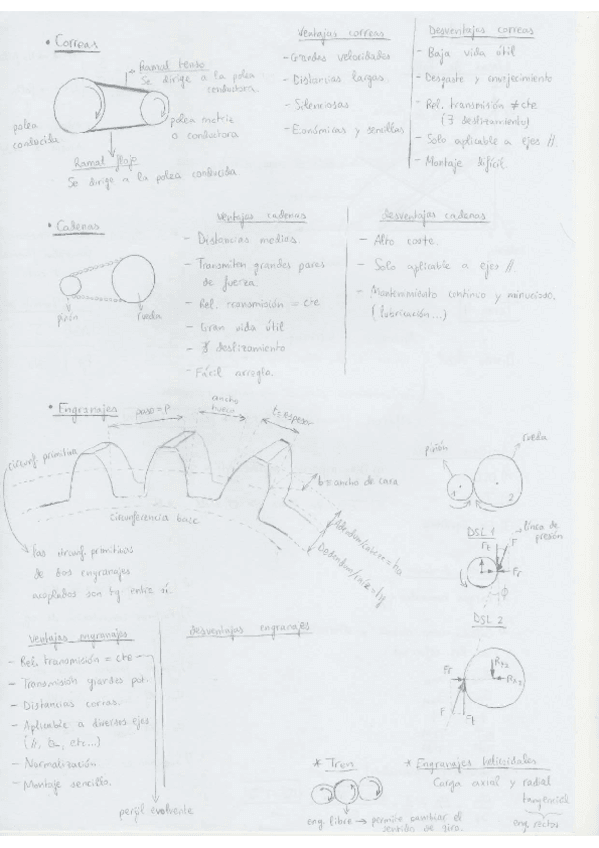 • Correas
Ramal tenso
Se dirige a la polea
conductora.
polea
conducida
polea motriz
o conductora
Ramal flojo
Se dirige a la polea conducida
Ventajas correas
- Grandes velocidades
- Distancias largas.
- Silenciosas
- Económicas y sencillas
Desventajas correas
- Baja vida útil
- Desgaste y envejecimiento
- Rel. transmisión ≠ cte
(∃ deslizamiento)
- Solo aplicable a ejes //.
- Montaje difícil.
• Cadenas
piñón
rueda
Ventajas cadenas
- Distancias medias.
- Transmiten grandes pares
de fuerza.
- Rel. transmisión = cte
- Gran vida útil
- ∄ deslizamiento
- Fácil arreglo.
desventajas cadenas
- Alto coste.
- Solo aplicable a ejes //.
- Mantenimiento continuo y minucioso.
(lubricación...)
• Engranajes
paso = p
ancho
hueco
t = espesor
circunf. primitiva
b = ancho de cara
circunferencia base
Addendum/cabeza = ha
Dedendum/raíz = hf
las circunf. primitivas
de dos engranajes
acoplados son tg entre sí.
piñón
rueda
1
2
DSL 1
línea de
presión
Ft
F
Fr
φ
DSL 2
Fr
F
Ft
Ventajas engranajes
- Rel. transmisión = cte
- Transmisión grandes pot.
- Distancias cortas.
- Aplicable a diversos ejes
- Normalización
- Montaje sencillo.
perfil evolvente
desventajas engranajes
* Tren
eng. libre → permite cambiar el
sentido de giro.
* Engranajes helicoidales
Carga axial y radial
tangencial
eng. rectos